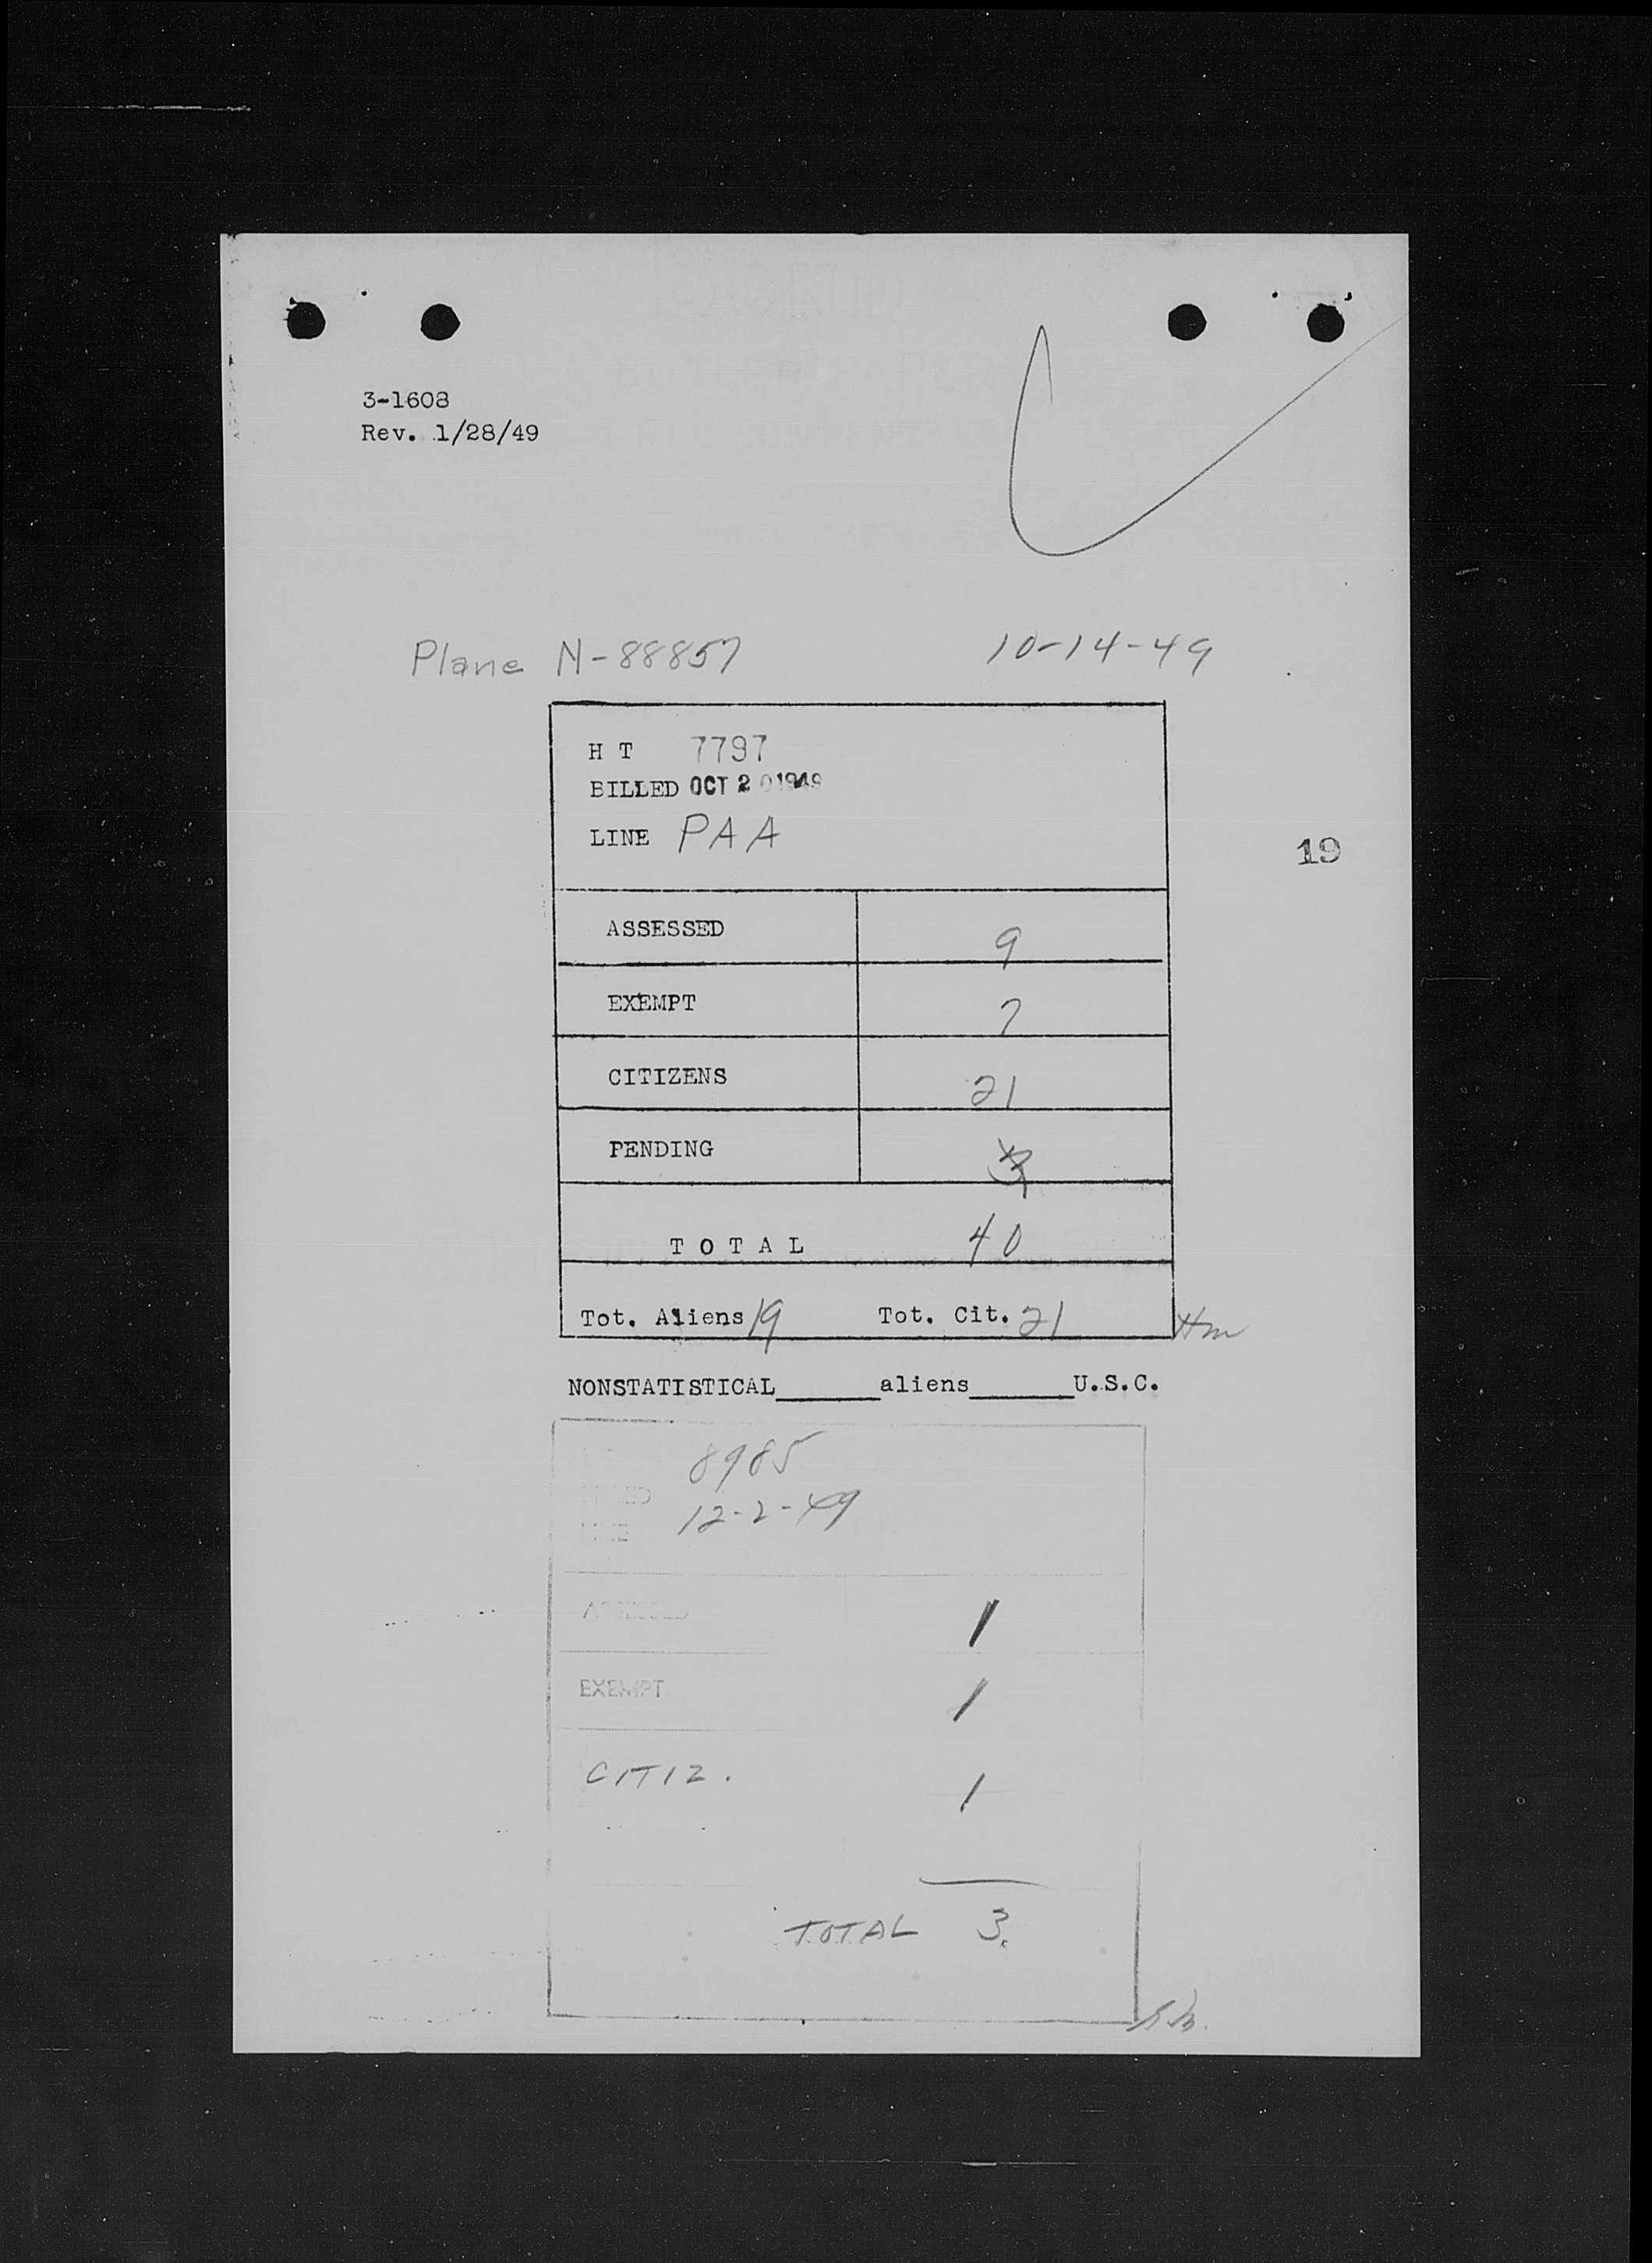 3-1608
Rev. 1/28/49
Plane N-88857 10-14-49
H T 7797
BILLED OCT 20 1949
LINE PAA
19
ASSESSED 9
EXEMPT 7
CITIZENS 21
PENDING 3
TOTAL 40
Tot. Aliens 19 Tot. Cit. 21 Hm
NONSTATISTICAL______aliens______U.S.C.
8985
12-2-49
ASSESSED 1
EXEMPT 1
CITIZ. 1
TOTAL 3